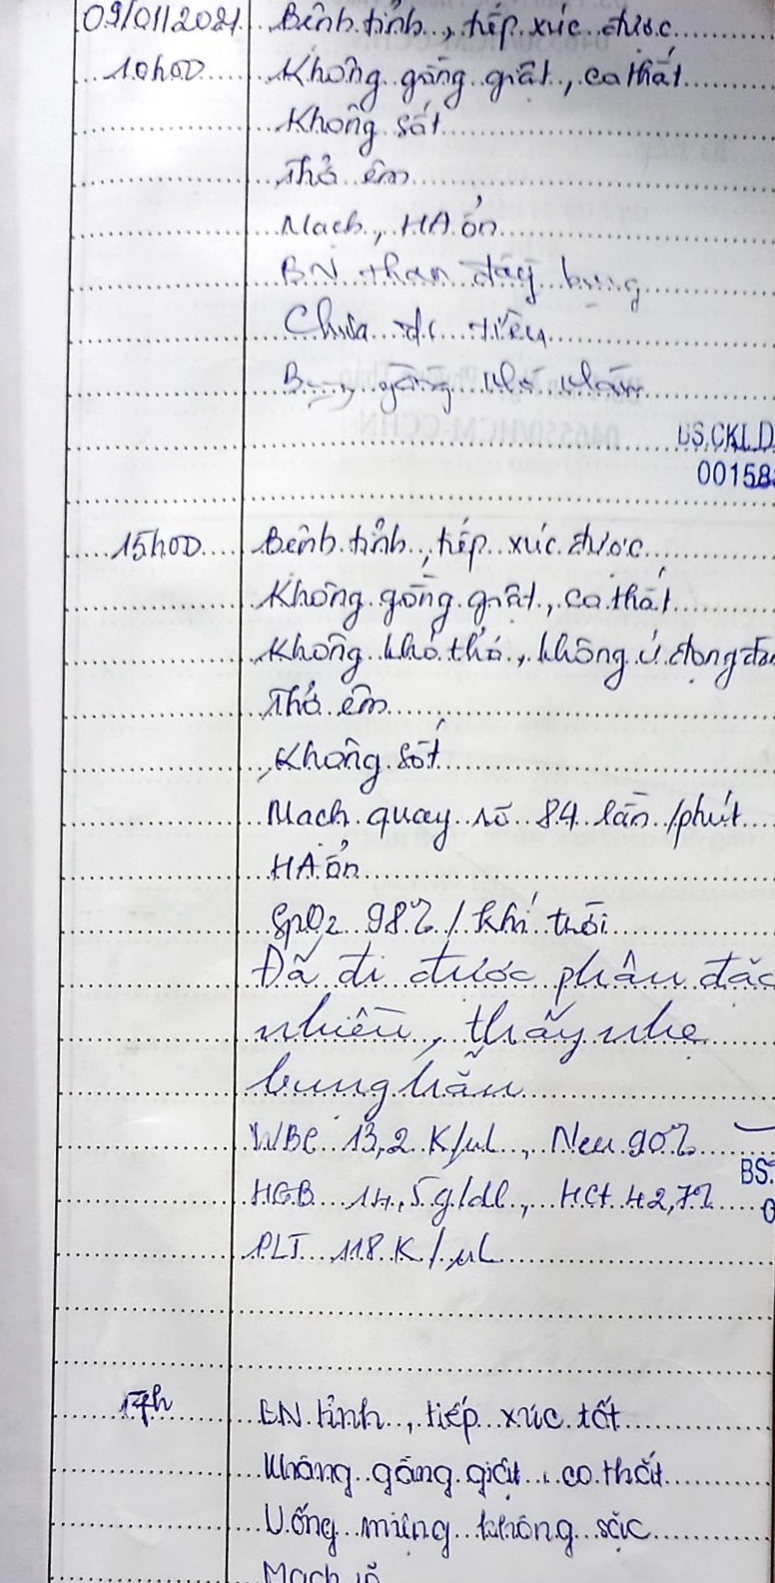 09/01/2021 Bệnh tỉnh, tiếp xúc được
10h00 Không gồng giật, co thắt
Không sốt
Thở êm
Mạch, HA ổn
BN than đầy bụng
Chưa đi tiêu
Bụng gồng nhẹ
BS.CKI.D
00158
15h00 Bệnh tỉnh, tiếp xúc được
Không gồng giật, co thắt
Không khó thở, không ứ đọng đàm
Thở êm
Không sốt
Mạch quay rõ 84 lần/phút
HA ổn
SpO2 98% / khí trời
Đã đi được phân đặc
nhiều, thấy nhẹ
bụng hẳn
WBC 13,2 K/µl, Neu 90%
BS.
HGB 14,5g/dl, HCt 42,7%
0
PLT 118 K/µL
17h BN tỉnh, tiếp xúc tốt
Không gồng giật, co thắt
Uống miệng không sặc
Mạch rõ